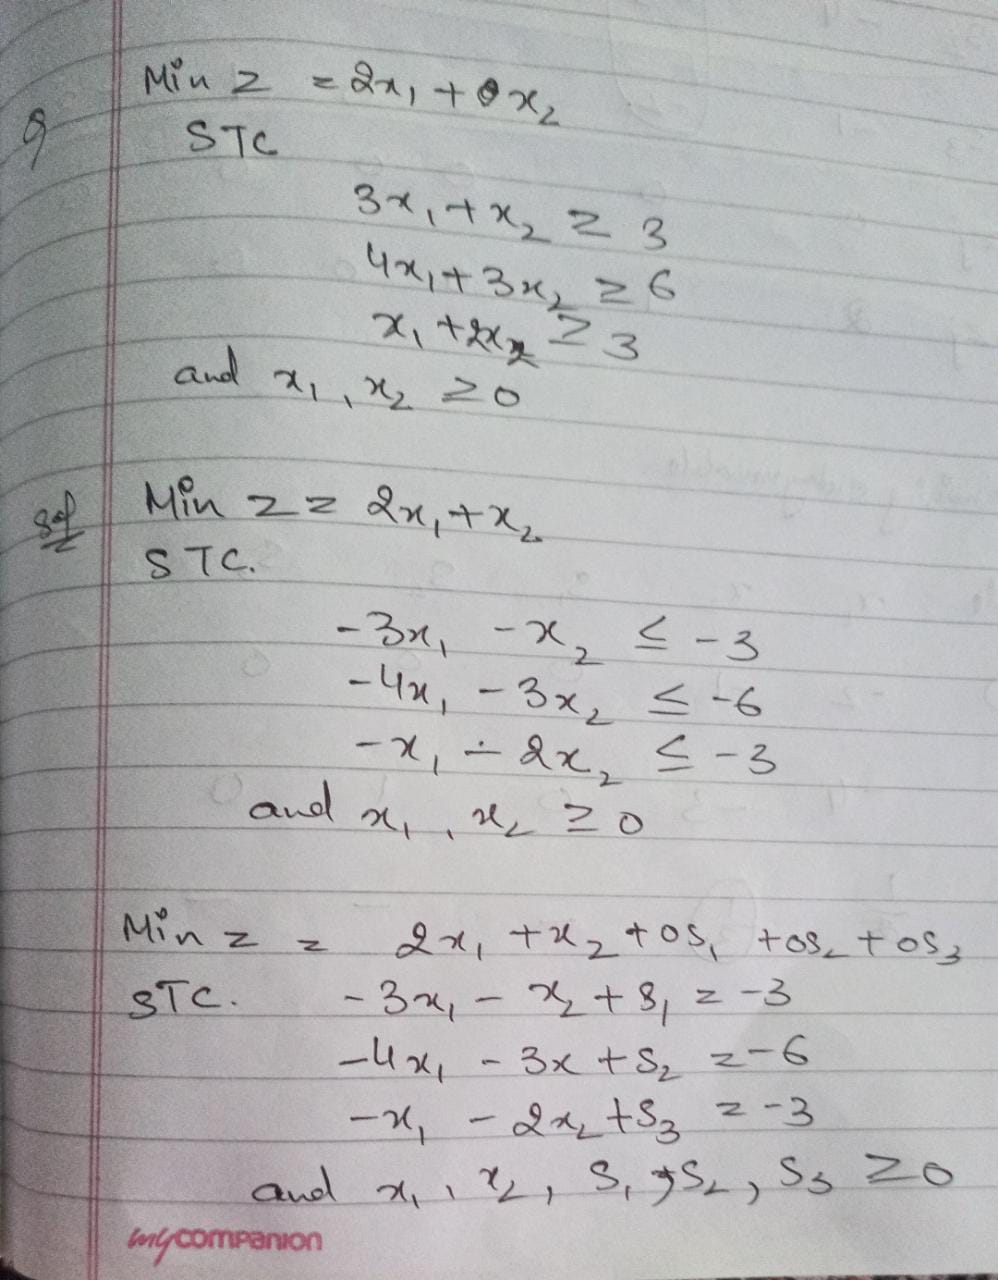 Min z = 2x₁ + x₂
Q
STC
3x₁ + x₂ ≥ 3
4x₁ + 3x₂ ≥ 6
x₁ + 2x₂ ≥ 3
and x₁, x₂ ≥ 0
Sol Min z = 2x₁ + x₂
STC.
-3x₁ - x₂ ≤ -3
-4x₁ - 3x₂ ≤ -6
-x₁ - 2x₂ ≤ -3
and x₁, x₂ ≥ 0
Min z = 2x₁ + x₂ + 0S₁ + 0S₂ + 0S₃
STC. -3x₁ - x₂ + S₁ = -3
-4x₁ - 3x + S₂ = -6
-x₁ - 2x₂ + S₃ = -3
and x₁, x₂, S₁, S₂, S₃ ≥ 0
mycompanion